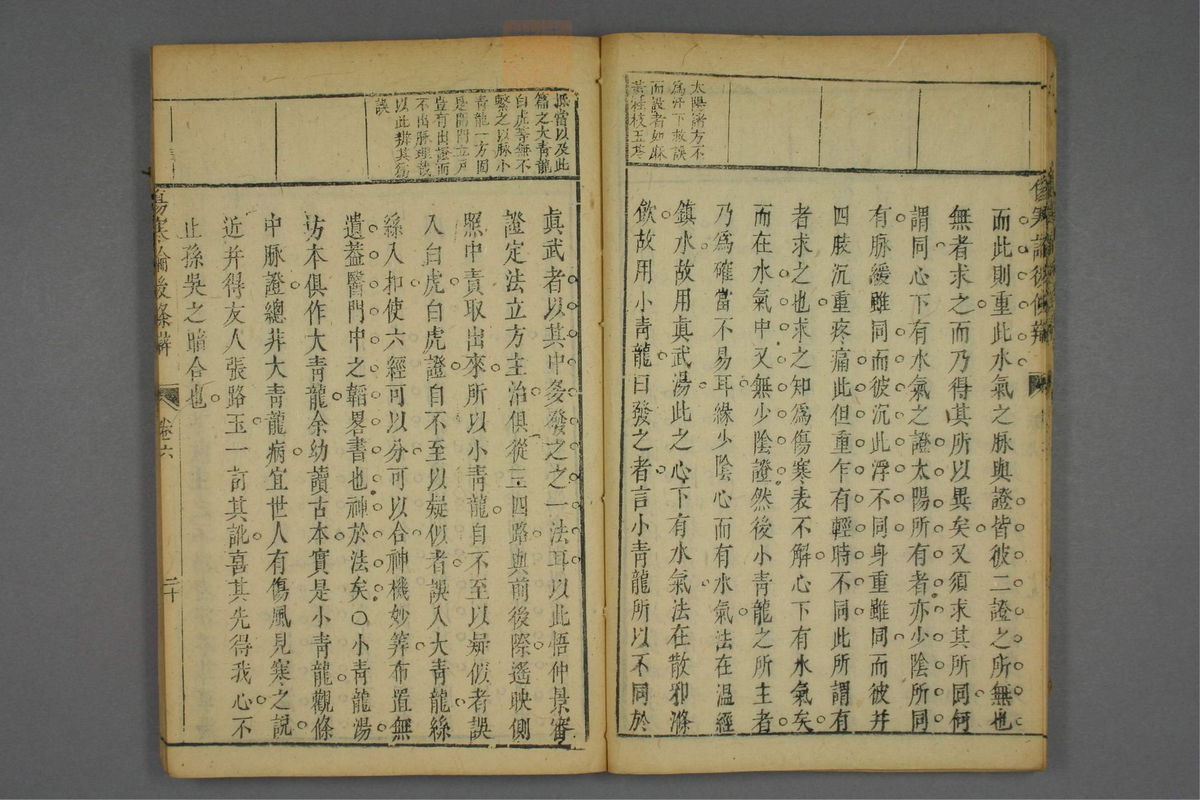 太陽諸方不
為汗下救誤
而設者如麻
黃桂枝五苓
而此則重此水氣之脉與證皆彼二證之所無也
無者求之而乃得其所以異矣又須求其所同何
謂同心下有水氣之證太陽所有者亦少陰所同
有脉緩雖同而彼沉此浮不同身重雖同而彼并
四肢沉重疼痛此但重乍有輕時不同此所謂有
者求之也求之知為傷寒表不解心下有水氣矣
而在水氣中又無少陰證然後小青龍之所主者
乃為確當不易耳緣少陰心而有水氣法在溫經
鎮水故用眞武湯此之心下有水氣法在散邪滌
飲故用小青龍曰發之者言小青龍所以不同於
傷寒論後條辨
際當以及此
篇之大青龍
白虎等無不
繫之以脉小
青龍一方固
是開門立戶
豈有出證而
不出脉理哉
以此辨其爲
誤
眞武者以其中多發之之一法耳以此悟仲景審
證定法立方主治俱從三四路與前後際遙映側
照中責取出來所以小青龍自不至以疑似者誤
入白虎白虎證自不至以疑似者誤入大青龍絲
絲入扣使六經可以分可以合神機妙筭布置無
遺蓋醫門中之韜畧書也神於法矣○小青龍湯
坊本俱作大青龍余幼讀古本實是小青龍觀條
中脉證總非大青龍病宜世人有傷風見寒之說
近并得友人張路玉一訂其訛喜其先得我心不
止孫吳之暗合也
傷寒論後條辨
卷六
二十